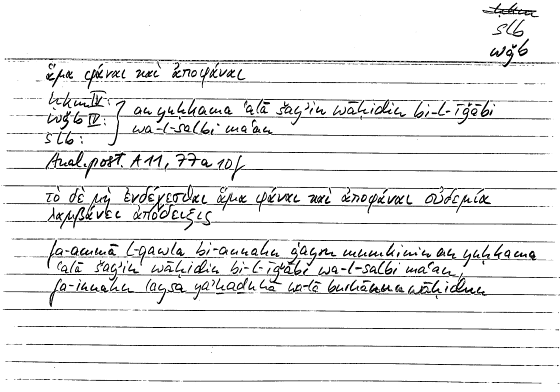 ḥkm
slb
wǧb
ἅμα φάναι καὶ ἀποφάναι
ḥkm IV:
wǧb IV: an yuḥkama ʿalā šayʾin wāḥidin bi-l-īǧābi
slb: wa-l-salbi maʿan
Anal. post. A 11, 77a 10f
τὸ δὲ μὴ ἐνδέχεσθαι ἅμα φάναι καὶ ἀποφάναι οὐδεμία
λαμβάνει ἀπόδειξις
fa-ammā l-qawlu bi-annahu ġayru mumkinin an yuḥkama
ʿalā šayʾin wāḥidin bi-l-īǧābi wa-l-salbi maʿan,
fa-innahu laysa yaʾḫuḏuhā wa-lā burhānun wāḥidun